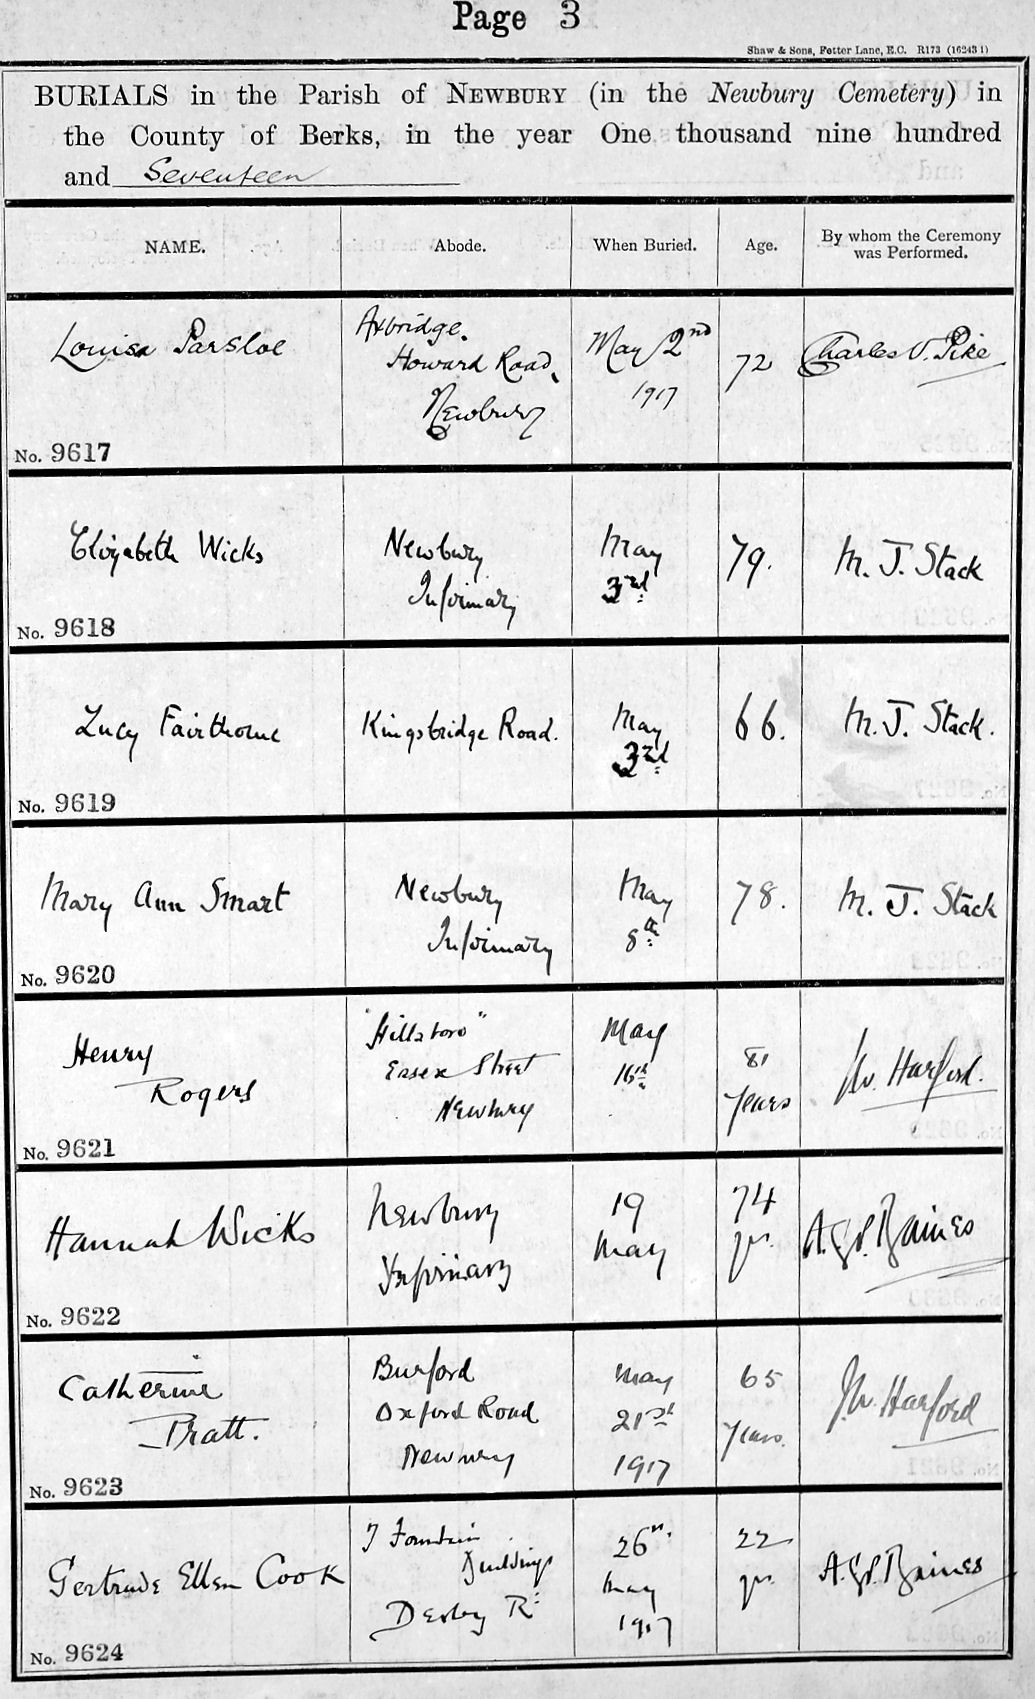 Page 3
Shaw & Sons, Fetter Lane, E.C. R173 (16243 1)
BURIALS in the Parish of NEWBURY (in the Newbury Cemetery) in
the County of Berks, in the year One thousand nine hundred
and Seventeen
NAME. Abode. When Buried. Age. By whom the Ceremony was Performed.
Louisa Parsloe
Axbridge.
Howard Road,
Newbury
May 2nd
1917
72
Charles V. Pike
No. 9617
Elizabeth Wicks
Newbury
Infirmary
May
3rd
79.
M. J. Stack
No. 9618
Lucy Fairthorne
Kingsbridge Road.
May
3rd
66.
M. J. Stack.
No. 9619
Mary Ann Smart
Newbury
Infirmary
May
8th
78.
M. J. Stack
No. 9620
Henry
Rogers
"Hillsboro"
Essex Street
Newbury
May
16th
81
years
W. Harford.
No. 9621
Hannah Wicks
Newbury
Infirmary
19
May
74
yrs.
Baines
No. 9622
Catherine
Pratt.
Burford
Oxford Road
Newbury
May
21st
1917
65
years.
W. Harford
No. 9623
Gertrude Ellen Cook
Fountain
Buildings
Derby Rd
26th.
May
1917
22
yrs.
Baines
No. 9624